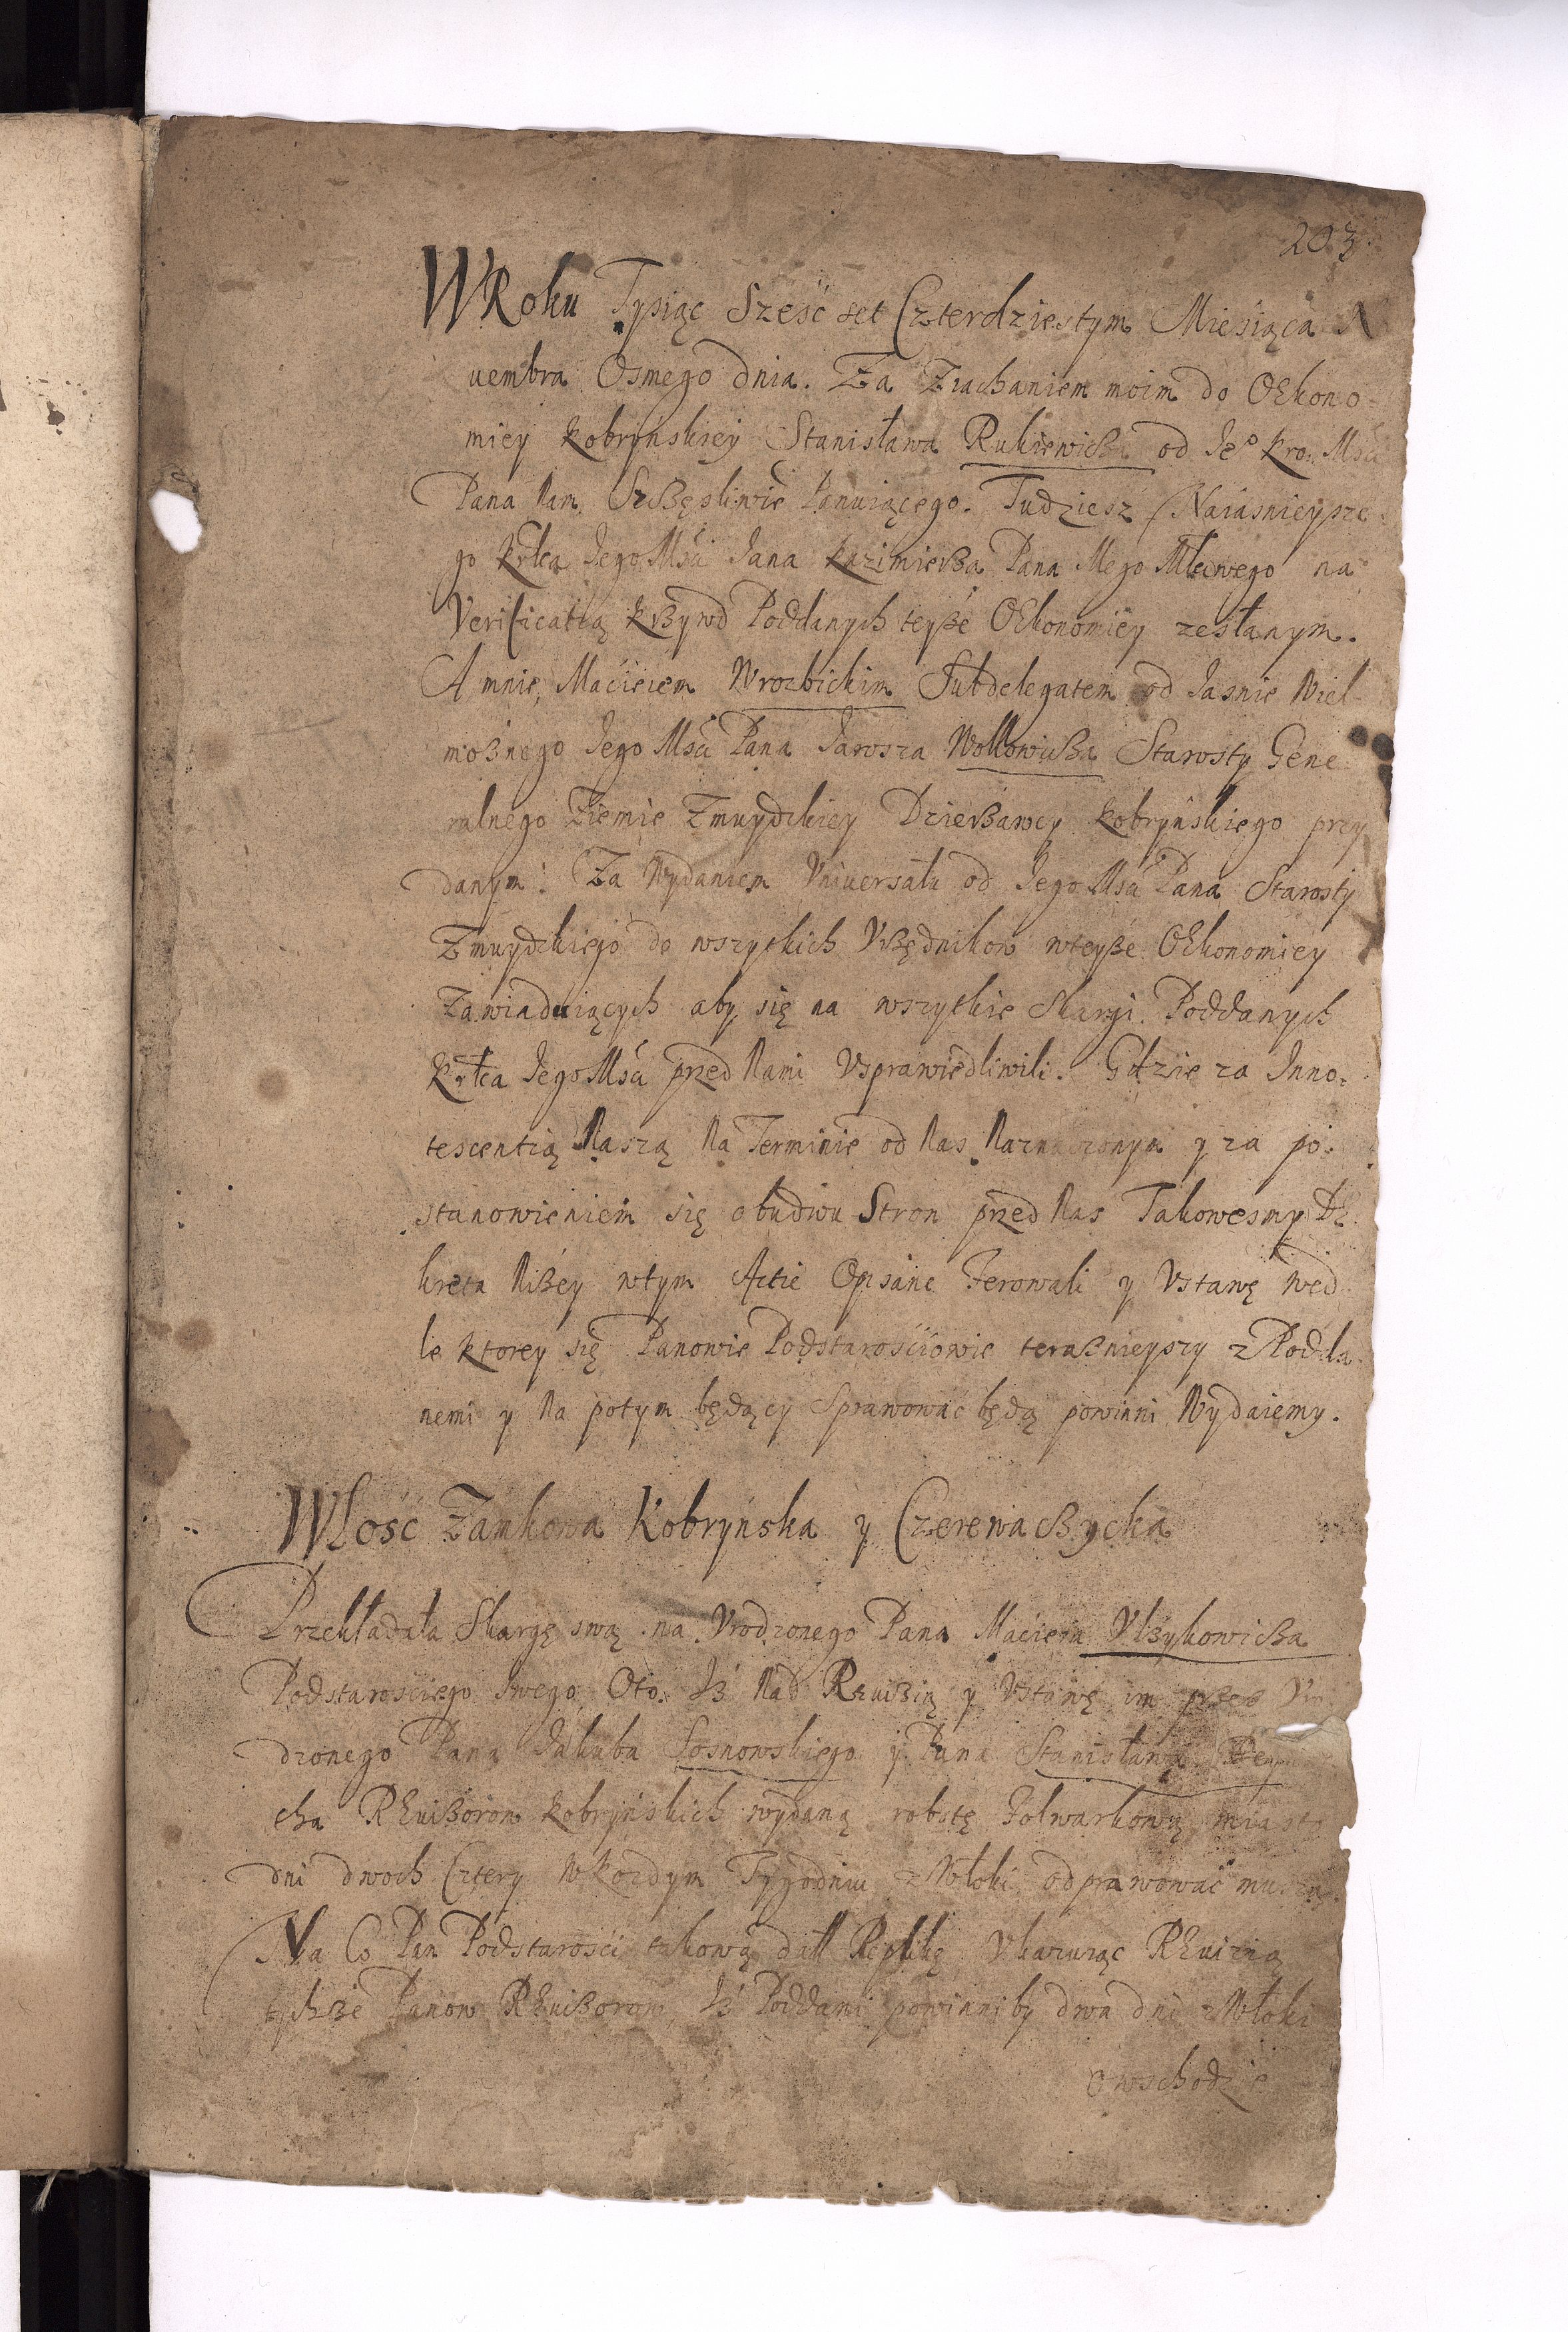 203
W Roku Tysiąc Szesć set Czterdziestym Miesiąca N
uembra Osmego dnia. Za Ziachaniem moim do OEkono-
miey Kobryńskiey Stanisława Rukiewicßa od Je° Kro: Mści
Pana Nam Szcßęsliwie Panuiącego. Tudziesz Naiasnieysze
go Krłca Jego Mści Jana Kazimierßa Pana Mego Młcwego na
Verificatią Krßywd Poddanych teyße OEkonomiey zesłanym.
A mnie Macieiem Wrozbickim Subdelegatem od Jasnie Wiel
moßnego Jego Mści Pana Jarosza Wołłowicßa Starosty Gene
ralnego Ziemie Zmuydzkiey Dzierßawcy Kobryńskiego przy
danym: Za Wydaniem Vniuersału od Jego Mści Pana Starosty
Zmuydzkiego do wszytkich Vrßędnikow wteyße OEkonomiey
Zawiaduiących aby się na wszytkie Skargi Poddanych
Krłca Jego Mści przed Nami Vsprawiedliwili. Gdzie za Inno-
tescentią Naszą Na Terminie od Nas Naznaczonym y za po-
stanowieniem się obudwu Stron przed Nas Takowesmy De
kreta Nißey wtym Actie Opisane Ferowali y Vstawę wed
le ktorey się Panowie Podstarościowie teraßnieyszy z Podda
nemi y Na potym będący Sprawować będą powinni Wydaiemy.
Włość Zamkowa Kobryńska y Czerewacßycka
Przekładała Skargę swą na Vrodzonego Pana Macieia Vlßykowicßa
Podstarosciego swego Oto. Iß Nad Rewißią y Vstawę im przez Vro
dzonego Pana Jakuba Sosnowskiego y Pana Stanisława
cha REuißorow Kobryńskich wydaną robotę Folwarkową miasto
dni dwoch Cztery w kozdym Tygodniu z Włoki odprawować muszą
Na Co Pan Podstarosci takową dałł Replikę Vkazuiąc REuizią
tychße Panow REuißorow, Iß Poddani powinni by dwa dni z Włoki
O wschodzie